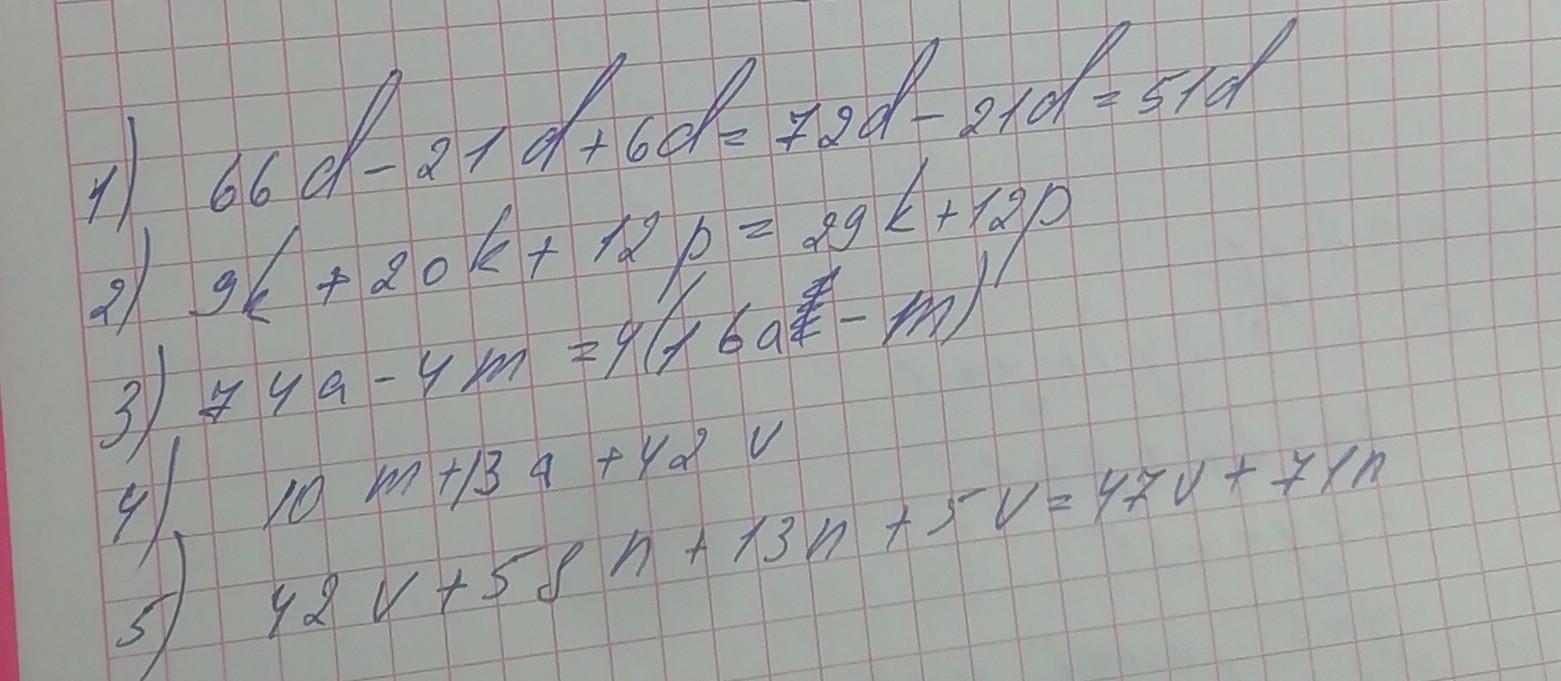 1) 66d - 21d + 6d = 72d - 21d = 51d
2) 9k + 20k + 12p = 29k + 12p
3) 74a - 4m = 4(16a - m)
4) 10m + 13a + 42v
5) 42v + 58n + 13n + 5v = 47v + 71n